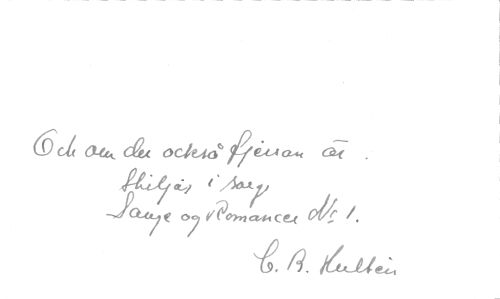 Och om du också fjerran är.
Skiljas i sorg
Sange og Romancer No 1.
C. B. Hultén